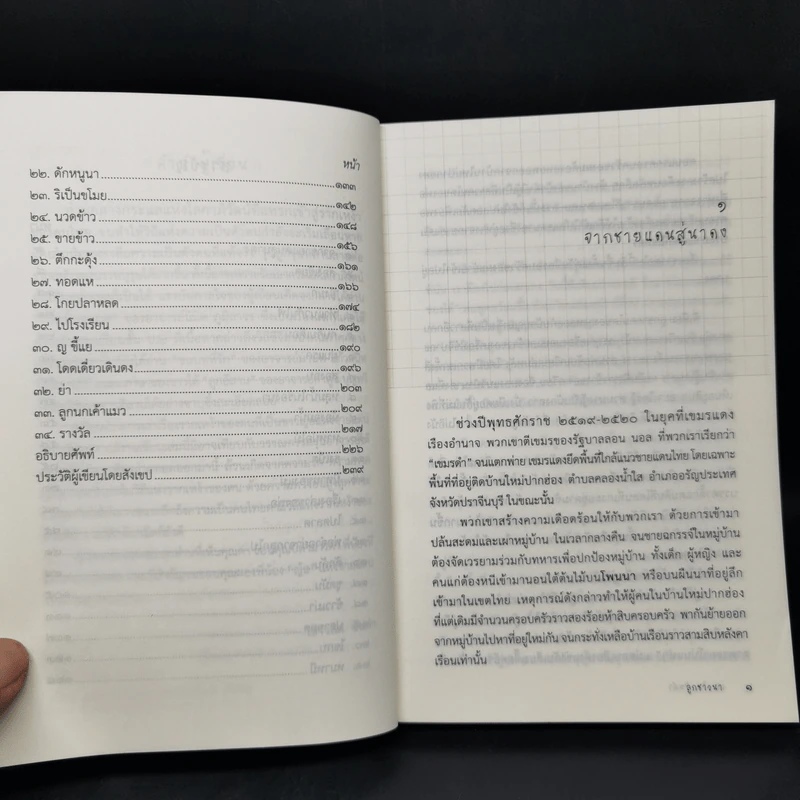 หน้า
๒๒. ดักหนูนา ๑๓๓
๒๓. ริเป็นขโมย ๑๔๒
๒๔. นวดข้าว ๑๔๘
๒๕. ขายข้าว ๑๕๖
๒๖. ตึกกะดุ้ง ๑๖๑
๒๗. ทอดแห ๑๖๖
๒๘. โกยปลาหลด ๑๗๔
๒๙. ไปโรงเรียน ๑๘๒
๓๐. ญ ขี้แย ๑๙๐
๓๑. โดดเดี่ยวเดินดง ๑๙๖
๓๒. ย่า ๒๐๓
๓๓. ลูกนกเค้าแมว ๒๐๙
๓๔. รางวัล ๒๑๗
อธิบายศัพท์ ๒๒๖
ประวัติผู้เขียนโดยสังเขป ๒๓๙
๑
จากชายแดนสู่นาดง
ช่วงปีพุทธศักราช ๒๕๑๙-๒๕๒๐ ในยุคที่เขมรแดง
เรืองอำนาจ พวกเขาตีเขมรของรัฐบาลลอน นอล ที่พวกเราเรียกว่า
“เขมรดำ” จนแตกพ่าย เขมรแดงยึดพื้นที่ใกล้แนวชายแดนไทย โดยเฉพาะ
พื้นที่ที่อยู่ติดบ้านใหม่ปากฮ่อง ตำบลคลองน้ำใส อำเภออรัญประเทศ
จังหวัดปราจีนบุรี ในขณะนั้น
พวกเขาสร้างความเดือดร้อนให้กับพวกเรา ด้วยการเข้ามา
ปล้นสะดมและเผาหมู่บ้าน ในเวลากลางคืน จนชายฉกรรจ์ในหมู่บ้าน
ต้องจัดเวรยามร่วมกับทหารเพื่อปกป้องหมู่บ้าน ทั้งเด็ก ผู้หญิง และ
คนแก่ต้องหนีเข้ามานอนใต้ต้นไม้บนโพนนา หรือบนผืนนาที่อยู่ลึก
เข้ามาในเขตไทย เหตุการณ์ดังกล่าวทำให้ผู้คนในบ้านใหม่ปากฮ่อง
ที่แต่เดิมมีจำนวนครอบครัวราวสองร้อยห้าสิบครอบครัว พากันย้ายออก
จากหมู่บ้านไปหาที่อยู่ใหม่กัน จนกระทั่งเหลือบ้านเรือนราวสามสิบหลังคา
เรือนเท่านั้น
ลูกชาวนา ๑